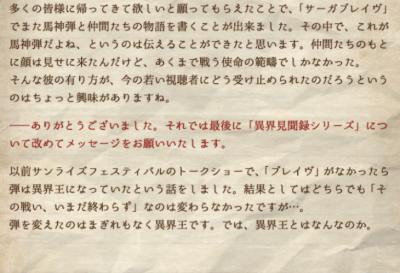 多くの皆様に帰ってきて欲しいと願ってもらえたことで、「サーガブレイヴ」
でまた馬神弾と仲間たちの物語を書くことが出来ました。その中で、これが
馬神弾だよね、というのは伝えることができたと思います。仲間たちのもと
に顔は見せに来たんだけど、あくまで戦う使命の範疇でしかなかった。
そんな彼の有り方が、今の若い視聴者にどう受け止められたのだろうという
のはちょっと興味がありますね。
――ありがとうございました。それでは最後に「異界見聞録シリーズ」につ
いて改めてメッセージをお願いいたします。
以前サンライズフェスティバルのトークショーで、「ブレイヴ」がなかったら
弾は異界王になっていたという話をしました。結果としてはどちらでも「そ
の戦い、いまだ終わらず」なのは変わらなかったですが…。
弾を変えたのはまぎれもなく異界王です。では、異界王とはなんなのか。